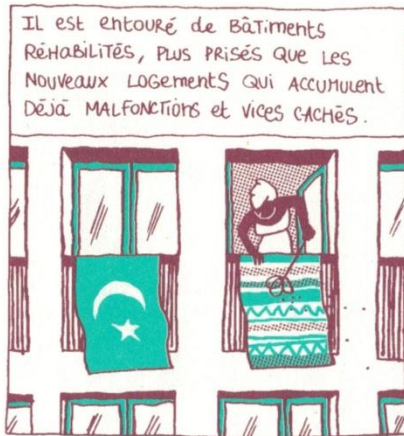 IL est entouré de Bâtiments
Réhabilités, plus prisés que les
nouveaux logements qui accumulent
déjà malfonctions et vices cachés.